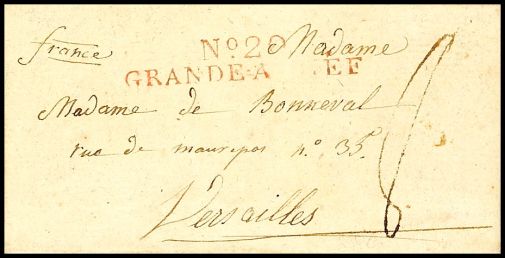 france
No. 20 Madame
GRANDE-A EF
Madame de Bonneval
rue de maurepas no. 35.
Versailles
8